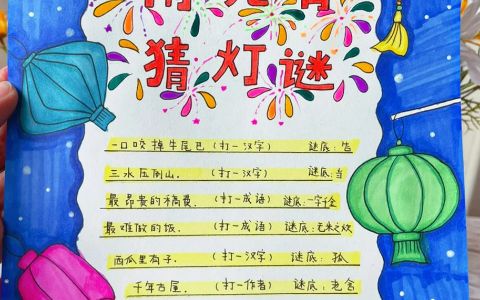 猜灯谜
一口咬掉牛尾巴(打一汉字) 谜底:告
三水压倒山.(打一汉字) 谜底:当
最昂贵的稿费.(打一成语) 谜底:一字千金
最难做的饭.(打一成语) 谜底:无米之炊
西瓜里有子.(打一汉字) 谜底:孤
千年古屋.(打一作者) 谜底:老舍